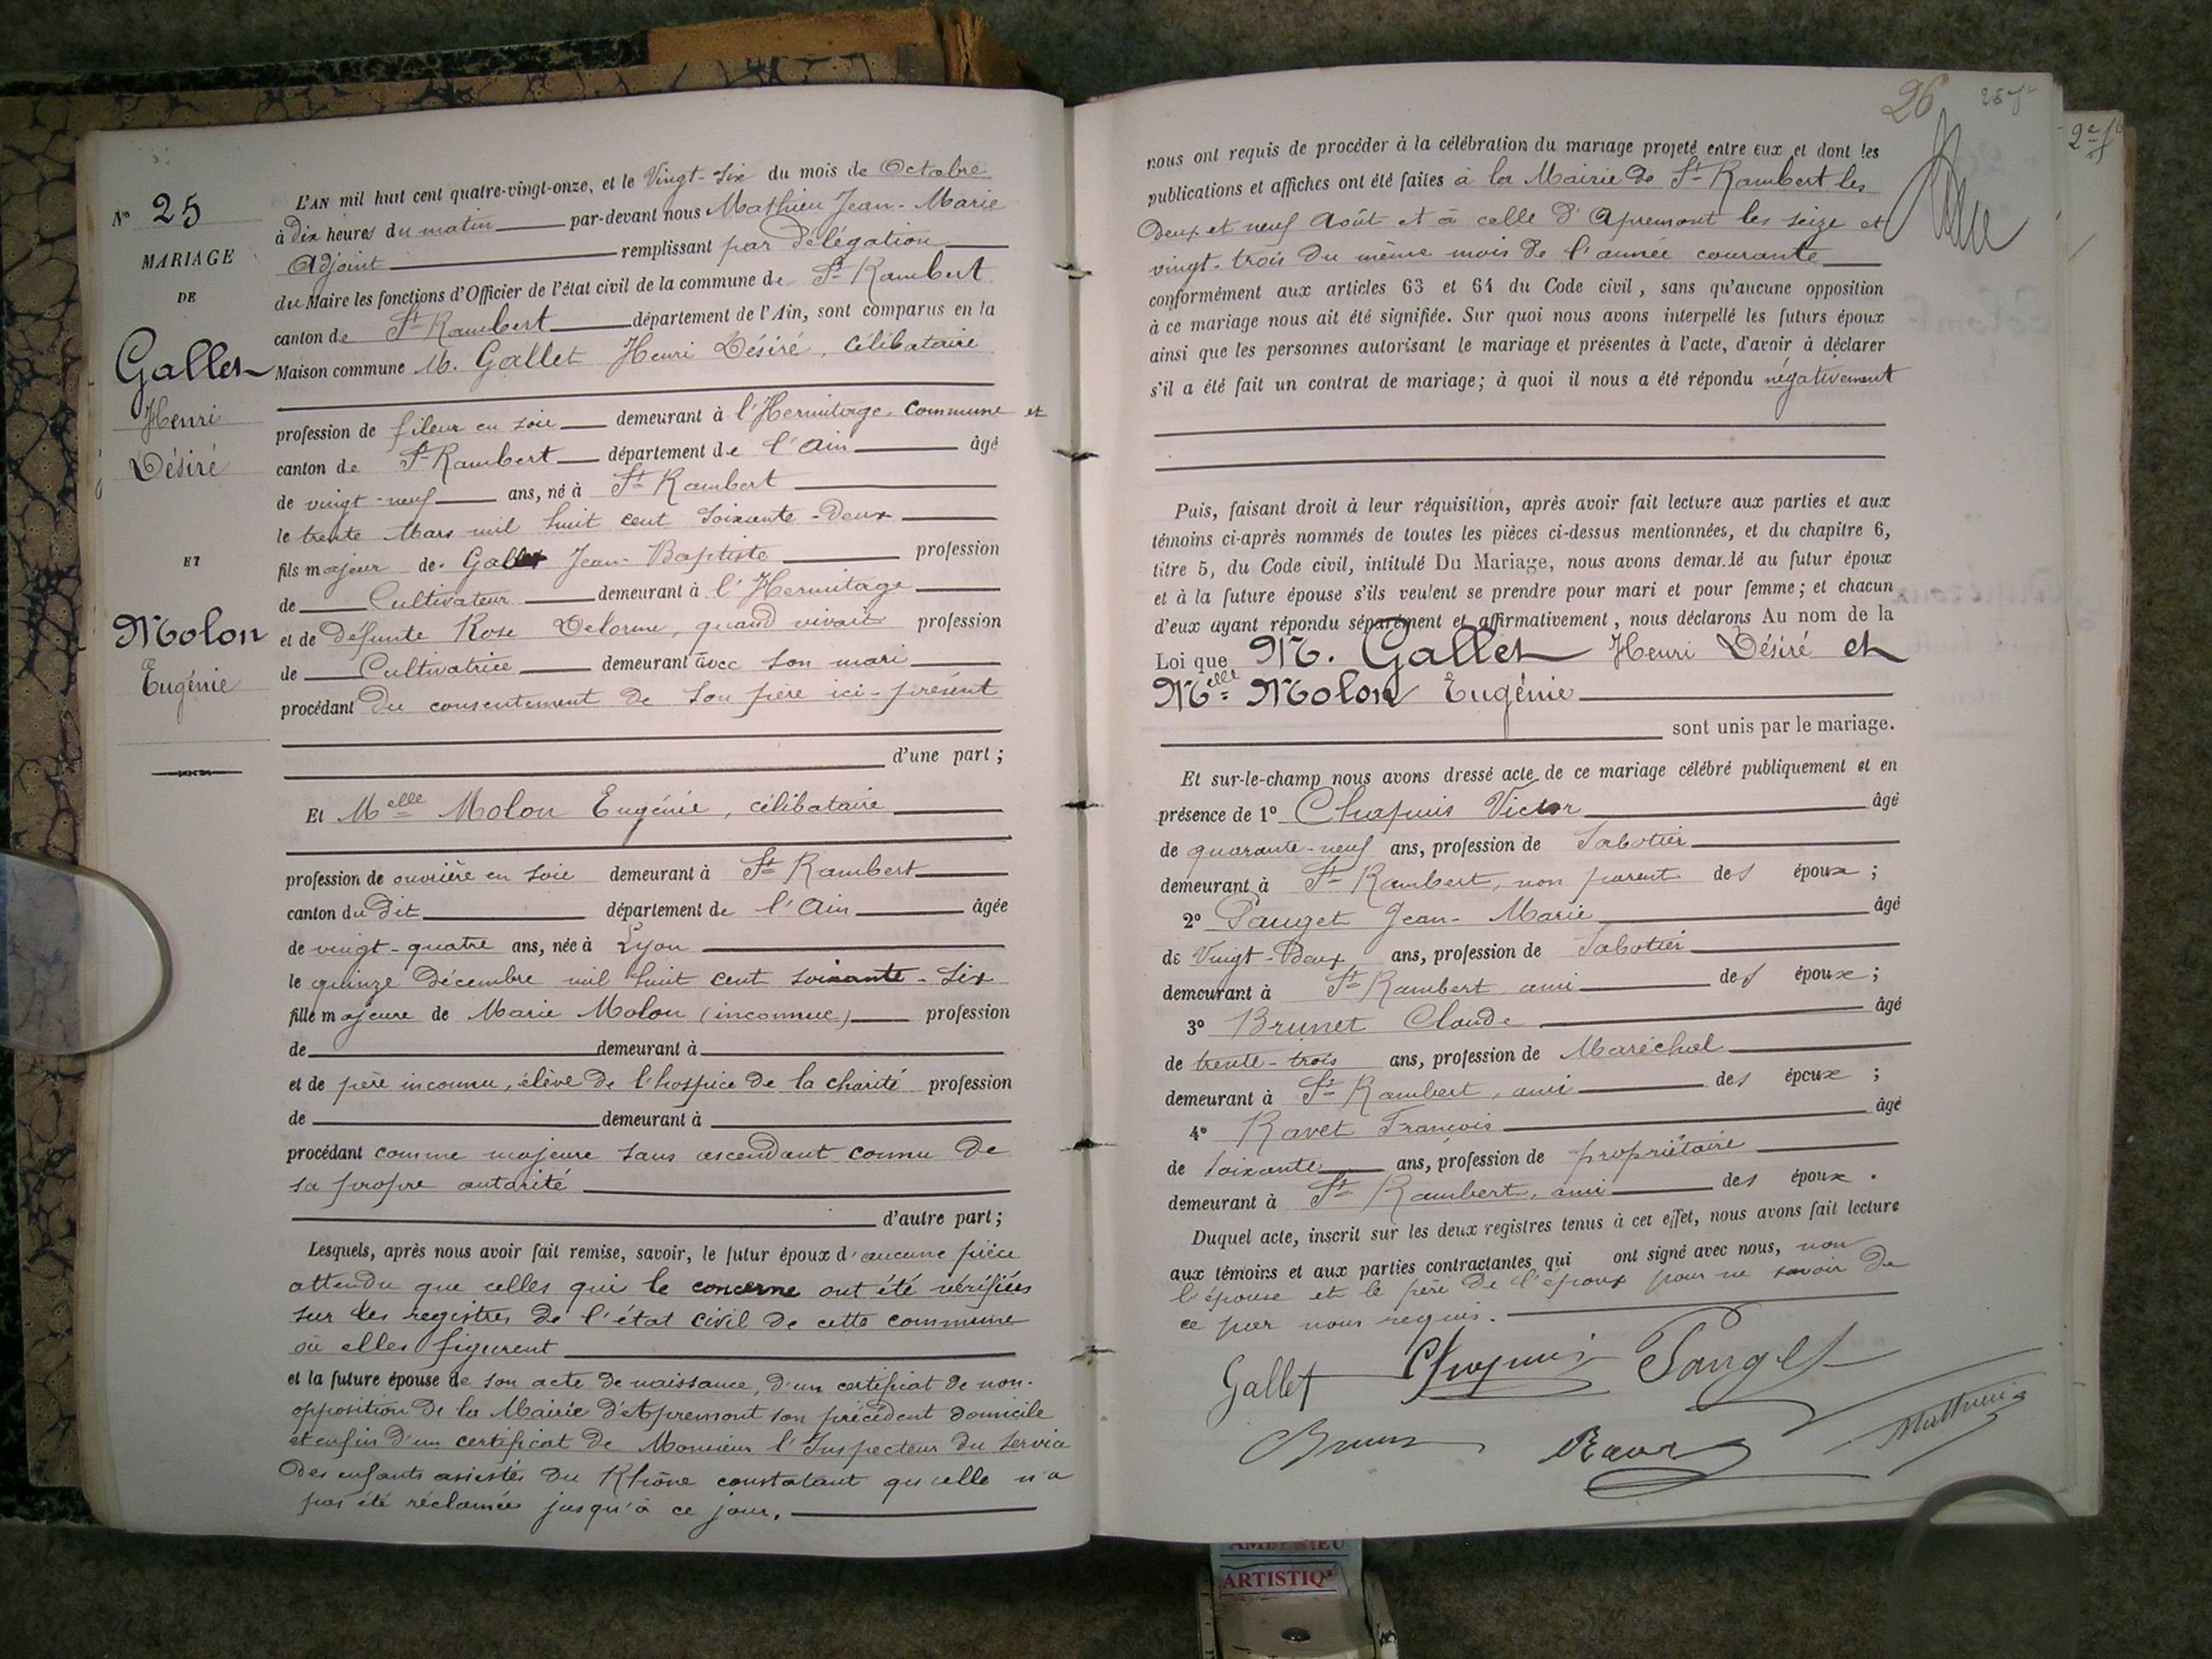 N° 25
MARIAGE
DE
Gallet
Henri
Désiré
ET
Molon
Eugénie
L'AN mil huit cent quatre-vingt-onze, et le Vingt-six du mois de Octobre
à Dix heures du matin par-devant nous Mathieu Jean-Marie
Adjoint remplissant par délégation
du Maire les fonctions d'Officier de l'état civil de la commune de St Rambert
canton de St Rambert département de l'Ain, sont comparus en la
Maison commune M. Gallet Henri Désiré, célibataire
profession de fileur en soie demeurant à l'Hermitage, commune et
canton de St Rambert département de l'Ain âgé
de vingt-neuf ans, né à St Rambert
le trente Mars mil huit cent soixante-deux
fils majeur de Gallet Jean-Baptiste profession
de Cultivateur demeurant à l'Hermitage
et de défunte Rose Delorme, quand vivait profession
de Cultivatrice demeurant avec son mari
procédant du consentement de son père ici-présent
d'une part ;
Et Melle Molon Eugénie, célibataire
profession de ouvrière en soie demeurant à St Rambert
canton du dit département de l'Ain âgée
de vingt-quatre ans, née à Lyon
le quinze décembre mil huit cent soixante-six
fille majeure de Marie Molon (inconnue) profession
de demeurant à
et de père inconnu, élève de l'hospice de la charité profession
de demeurant à
procédant comme majeure sans ascendant connu de
sa propre autorité
d'autre part ;
Lesquels, après nous avoir fait remise, savoir, le futur époux d'aucune pièce
attendu que celles qui le concerne ont été vérifiées
sur les registres de l'état civil de cette commune
où elles figurent
et la future épouse de son acte de naissance, d'un certificat de non-
opposition de la Mairie d'Apremont son précédent domicile
et enfin d'un certificat de Monsieur l'Inspecteur du service
des enfants assistés du Rhône constatant qu'elle n'a
pas été réclamée jusqu'à ce jour.
26
nous ont requis de procéder à la célébration du mariage projeté entre eux et dont les
publications et affiches ont été faites à la Mairie de St Rambert les
deux et neuf Août et à celle d'Apremont les seize et
vingt-trois du même mois de l'année courante
conformément aux articles 63 et 64 du Code civil, sans qu'aucune opposition
à ce mariage nous ait été signifiée. Sur quoi nous avons interpellé les futurs époux
ainsi que les personnes autorisant le mariage et présentes à l'acte, d'avoir à déclarer
s'il a été fait un contrat de mariage ; à quoi il nous a été répondu négativement
Puis, faisant droit à leur réquisition, après avoir fait lecture aux parties et aux
témoins ci-après nommés de toutes les pièces ci-dessus mentionnées, et du chapitre 6,
titre 5, du Code civil, intitulé Du Mariage, nous avons demandé au futur époux
et à la future épouse s'ils veulent se prendre pour mari et pour femme ; et chacun
d'eux ayant répondu séparément et affirmativement, nous déclarons Au nom de la
Loi que M. Gallet Henri Désiré et
Melle Molon Eugénie
sont unis par le mariage.
Et sur-le-champ nous avons dressé acte de ce mariage célébré publiquement et en
présence de 1° Chapuis Victor âgé
de quarante-neuf ans, profession de Sabotier
demeurant à St Rambert, non parent des époux ;
2° Pauget Jean-Marie âgé
de Vingt-Deux ans, profession de Sabotier
demeurant à St Rambert ami des époux ;
3° Brunet Claude âgé
de trente-trois ans, profession de Maréchal
demeurant à St Rambert, ami des époux ;
4° Ravet François âgé
de soixante ans, profession de propriétaire
demeurant à St Rambert, ami des époux.
Duquel acte, inscrit sur les deux registres tenus à cet effet, nous avons fait lecture
aux témoins et aux parties contractantes qui ont signé avec nous, non
l'épouse et le père de l'époux pour ne savoir de
ce par nous requis.
Gallet Chapuis Pauget
Brunet Ravet Mathieu
AMBERIEU
ARTISTIQUE